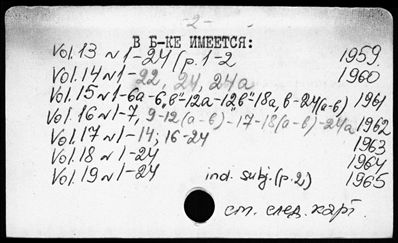 -2-
В Б-КЕ ИМЕЕТСЯ:
Vol. 13 N 1-24 (p. 1-2 1959
Vol. 14 N 1-22, 24, 24a 1960
Vol. 15 N 1-6a-6,в"-12a-12,в"-18a, в-24(a-в) 1961
Vol. 16 N 1-7, 9-12(a-в)-17-18(a-в)-24a 1962
Vol. 17 N 1-14; 16-24 1963
Vol. 18 N 1-24 1964
Vol. 19 N 1-24 ind. subj. (p. 2,) 1965
ст. след. карт.